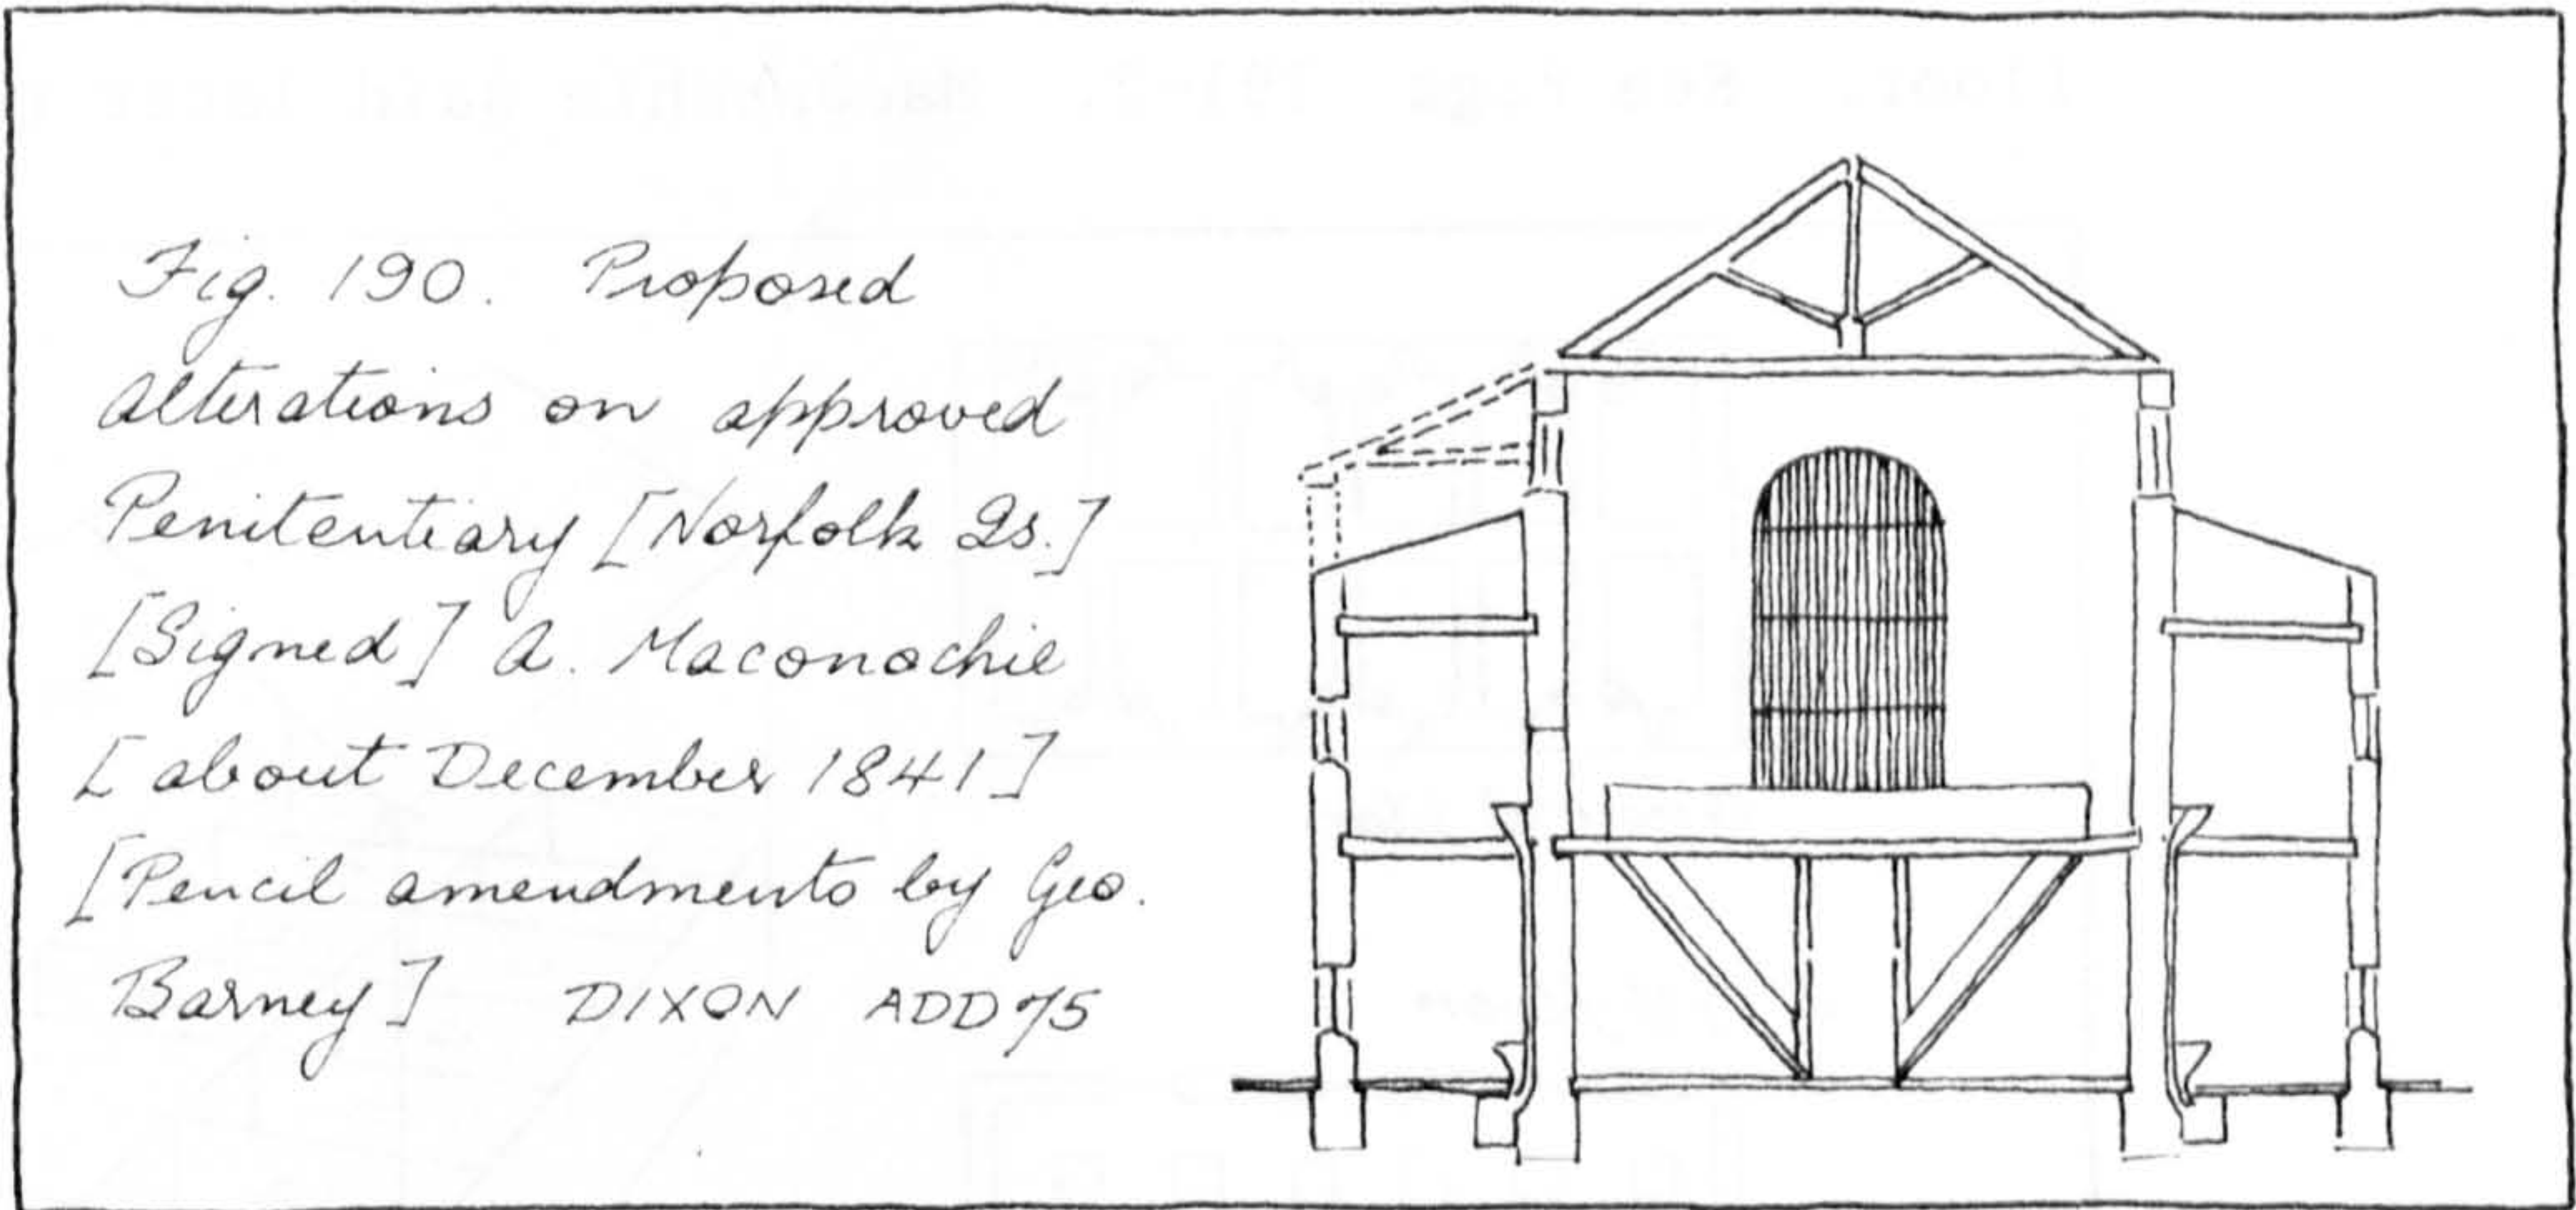 Fig. 190. Proposed
alterations on approved
Penitentiary [Norfolk Is.]
[Signed] A. Maconochie
[about December 1841]
[Pencil amendments by Geo.
Barney] DIXON ADD 75